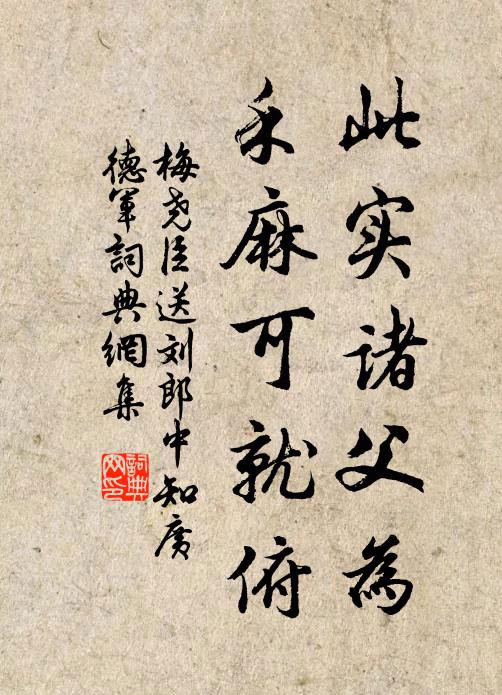 此实诸父為
禾麻可就俯
梅尧臣送刘郎中知廣
德军詞典網集
詞典
网印